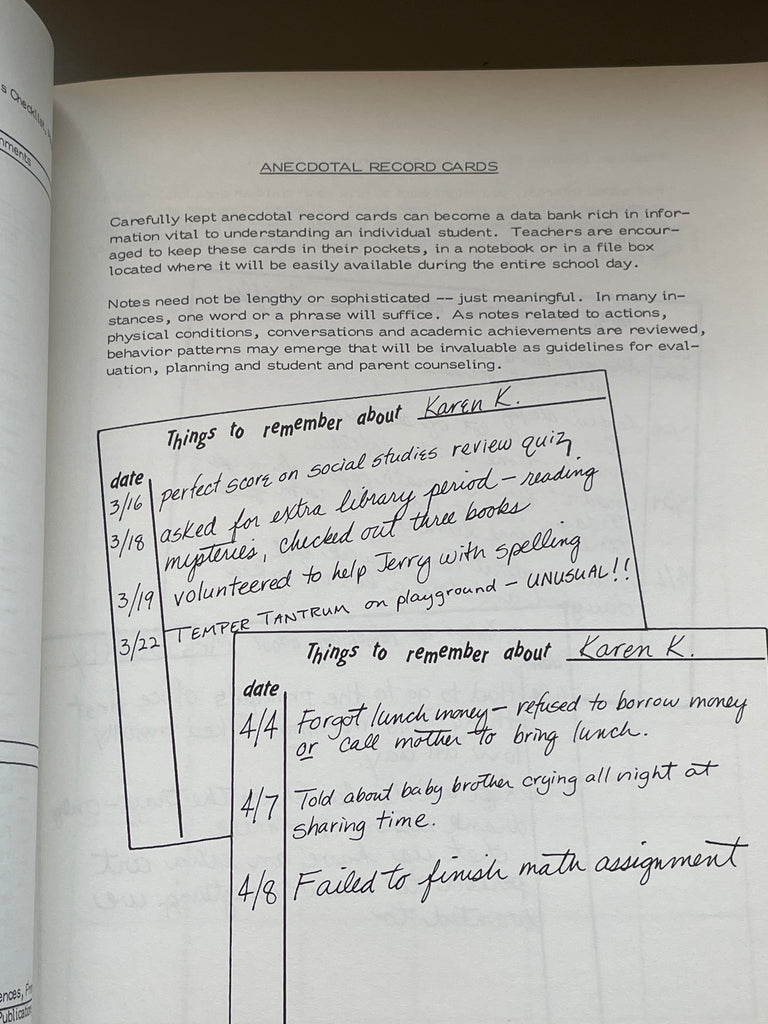 s Checklist,
mments
ANECDOTAL RECORD CARDS
Carefully kept anecdotal record cards can become a data bank rich in infor-
mation vital to understanding an individual student. Teachers are encour-
aged to keep these cards in their pockets, in a notebook or in a file box
located where it will be easily available during the entire school day.
Notes need not be lengthy or sophisticated -- just meaningful. In many in-
stances, one word or a phrase will suffice. As notes related to actions,
physical conditions, conversations and academic achievements are reviewed,
behavior patterns may emerge that will be invaluable as guidelines for eval-
uation, planning and student and parent counseling.
Things to remember about Karen K.
date
3/16 perfect score on social studies review quiz.
3/18 asked for extra library period - reading
mysteries, checked out three books
3/19 volunteered to help Jerry with spelling
3/22 TEMPER TANTRUM on playground - UNUSUAL!!
Things to remember about Karen K.
date
4/4 Forgot lunch money - refused to borrow money
or call mother to bring lunch.
4/7 Told about baby brother crying all night at
sharing time.
4/8 Failed to finish math assignment
ences,